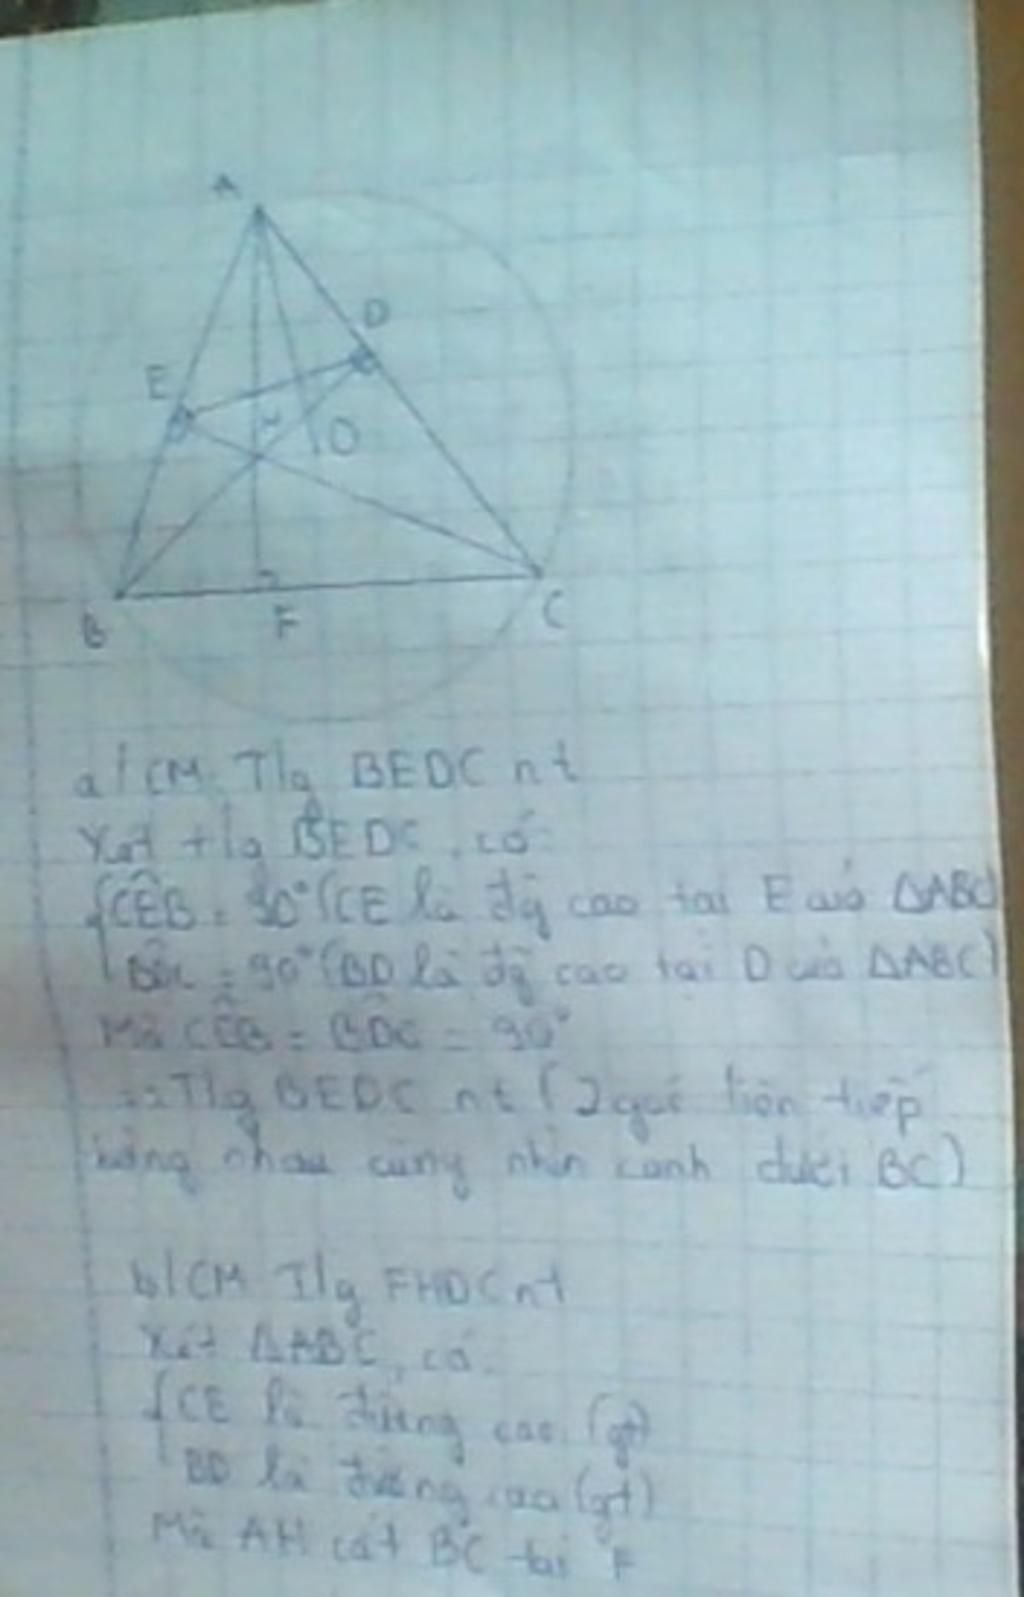 A
D
E
H
O
B
F
C
a/ CM: T/g BEDC nt
Xét t/g BEDC, có:
CÊB = 90° (CE là đg cao tại E của ΔABC)
BD̂C = 90° (BD là đg cao tại D của ΔABC)
Mà CÊB = BD̂C = 90°
=> T/g BEDC nt (2 góc liên tiếp
bằng nhau cùng nhìn cạnh dưới BC)
b/ CM T/g FHDC nt
Xét ΔABC, có:
CE là đường cao (gt)
BD là đường cao (gt)
Mà AH cắt BC tại F